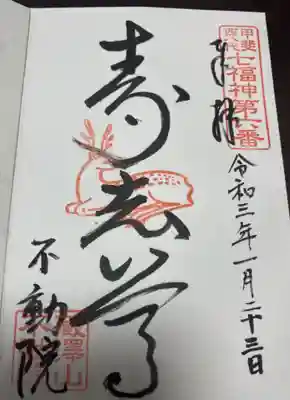 甲斐
西八代
七福神第六番
奉拝
令和三年一月二十三日
寿老尊
不動院